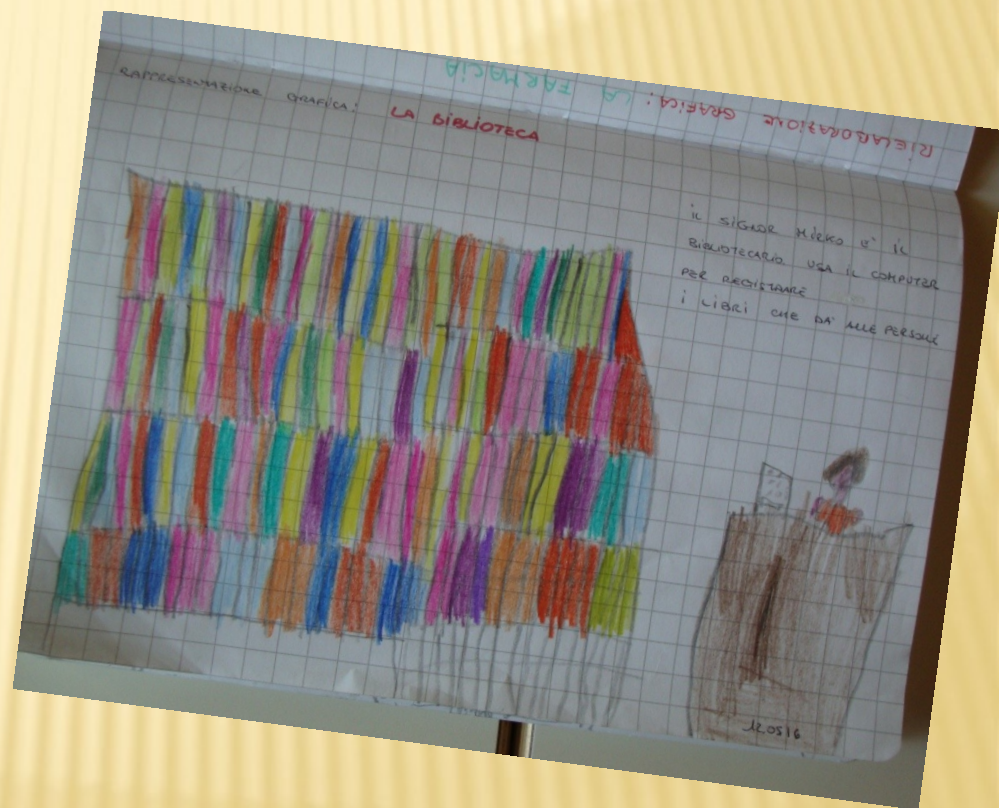 RIELABORAZIONE GRAFICA: LA FARMACIA
RAPPRESENTAZIONE GRAFICA: LA BIBLIOTECA
IL SIGNOR MIRKO E' IL
BIBLIOTECARIO USA IL COMPUTER
PER REGISTRARE
I LIBRI CHE DA' ALLE PERSONE
12.05.16